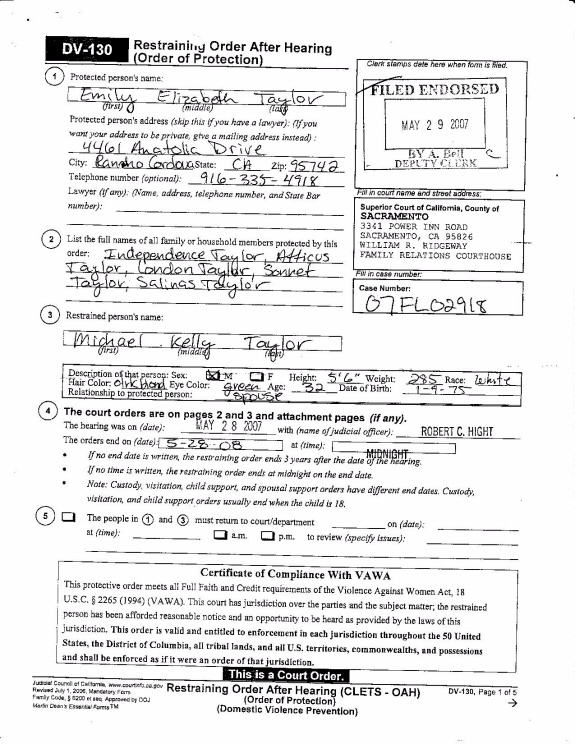 DV-130
Restraining Order After Hearing
(Order of Protection)
Clerk stamps date here when form is filed.
FILED ENDORSED
MAY 29 2007
BY A. Bell
DEPUTY CLERK
1 Protected person's name:
Emily Elizabeth Taylor
(first) (middle) (last)
Protected person's address (skip this if you have a lawyer): (If you
want your address to be private, give a mailing address instead) :
4461 Anatolic Drive
City: Rancho Cordova State: CA Zip: 95742
Telephone number (optional): 916-335-4918
Lawyer (if any): (Name, address, telephone number, and State Bar
number):
Fill in court name and street address:
Superior Court of California, County of
SACRAMENTO
3341 POWER INN ROAD
SACRAMENTO, CA 95826
WILLIAM R. RIDGEWAY
FAMILY RELATIONS COURTHOUSE
Fill in case number:
Case Number:
07FL02918
2 List the full names of all family or household members protected by this
order: Independence Taylor, Atticus
Taylor, London Taylor, Sonnet
Taylor, Salinas Taylor
3 Restrained person's name:
Michael Kelly Taylor
(first) (middle) (last)
Description of that person: Sex: M F Height: 5'6" Weight: 285 Race: White
Hair Color: Eye Color: green Age: 32 Date of Birth: 1-9-75
Relationship to protected person: spouse
4 The court orders are on pages 2 and 3 and attachment pages (if any).
The hearing was on (date): MAY 28 2007 with (name of judicial officer): ROBERT C. HIGHT
The orders end on (date): 5-28-08 at (time): MIDNIGHT
• If no end date is written, the restraining order ends 3 years after the date of the hearing.
• If no time is written, the restraining order ends at midnight on the end date.
• Note: Custody, visitation, child support, and spousal support orders have different end dates. Custody,
visitation, and child support orders usually end when the child is 18.
5 The people in 1 and 3 must return to court/department on (date):
at (time): a.m. p.m. to review (specify issues):
Certificate of Compliance With VAWA
This protective order meets all Full Faith and Credit requirements of the Violence Against Women Act, 18
U.S.C. § 2265 (1994) (VAWA). This court has jurisdiction over the parties and the subject matter; the restrained
person has been afforded reasonable notice and an opportunity to be heard as provided by the laws of this
jurisdiction. This order is valid and entitled to enforcement in each jurisdiction throughout the 50 United
States, the District of Columbia, all tribal lands, and all U.S. territories, commonwealths, and possessions
and shall be enforced as if it were an order of that jurisdiction.
This is a Court Order.
Judicial Council of California, www.courtinfo.ca.gov
Revised July 1, 2006, Mandatory Form
Family Code, § 6200 et seq. Approved by DOJ
Martin Dean's Essential Forms TM
Restraining Order After Hearing (CLETS - OAH)
(Order of Protection)
(Domestic Violence Prevention)
DV-130, Page 1 of 5
→